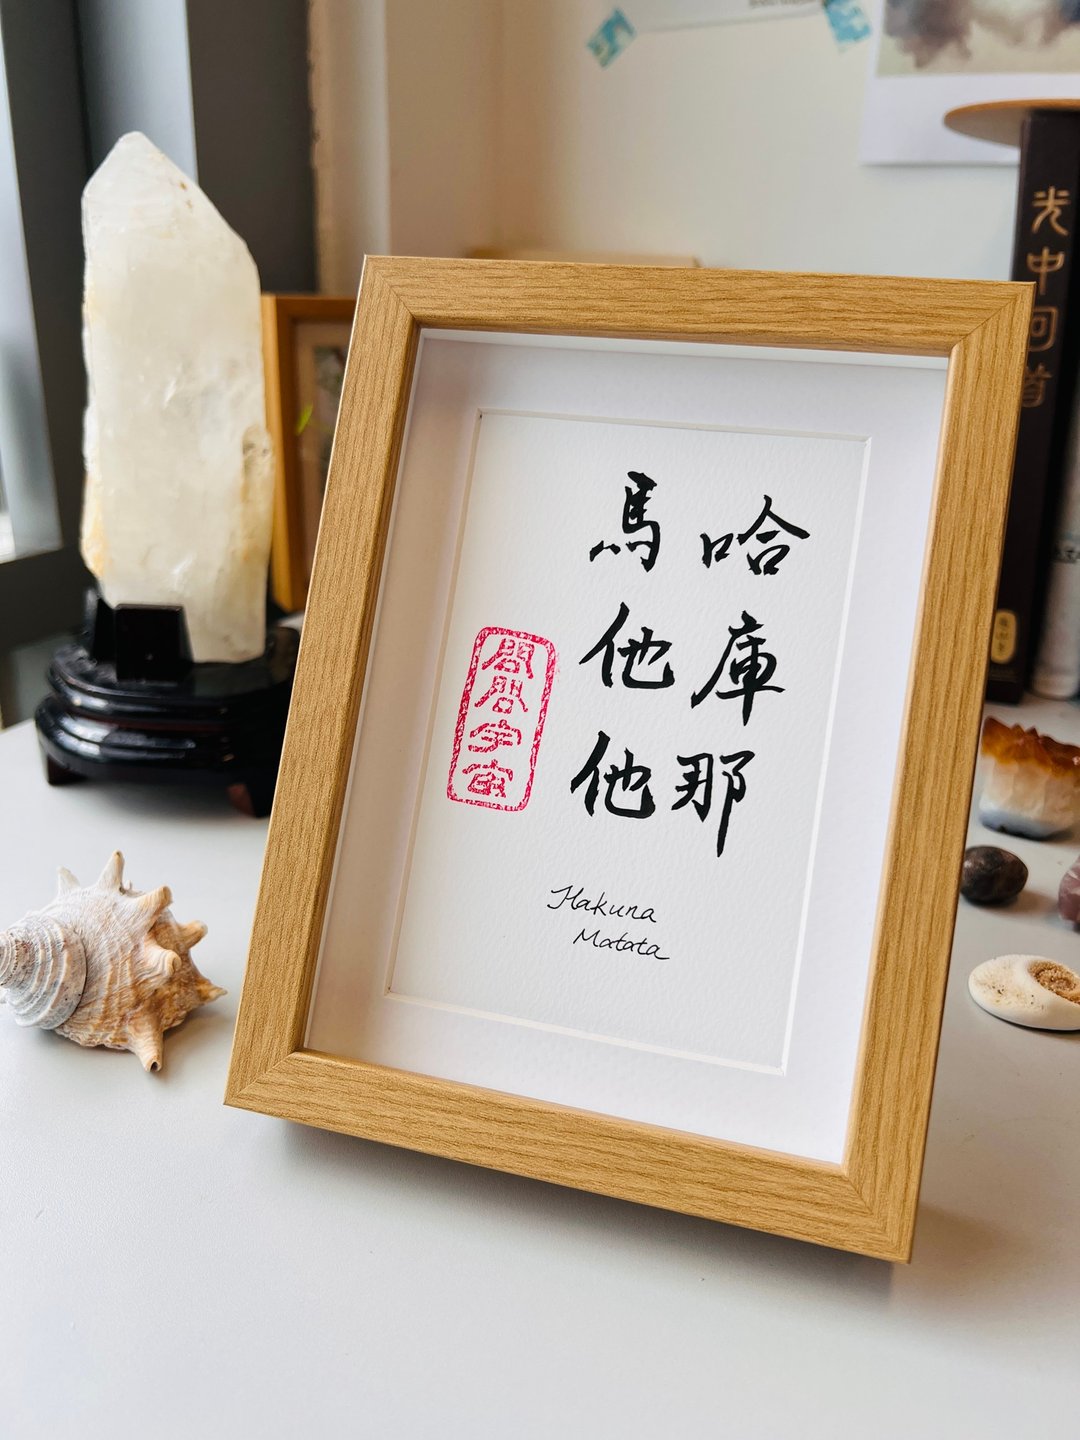 哈庫那
馬他他
問問宇宙
Hakuna
Matata
光中回首